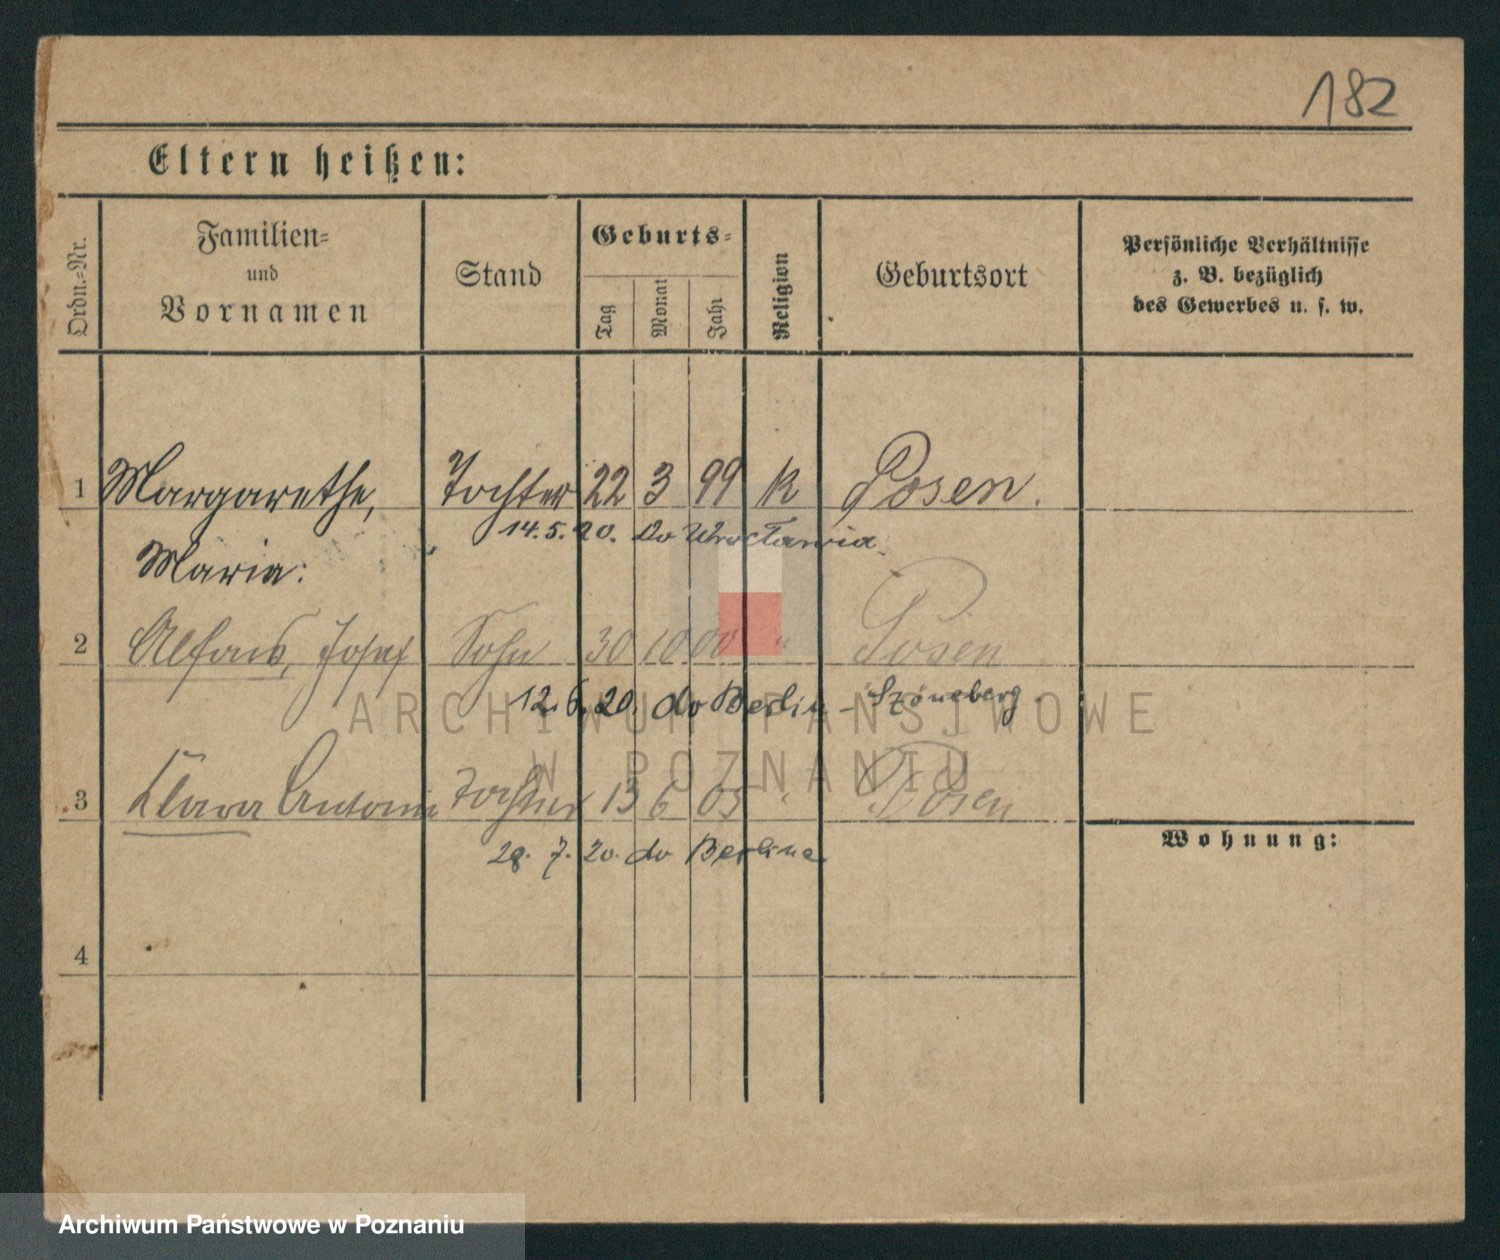 182
Eltern heißen:
Ordn.-Nr.
Familien-
und
Vornamen
Stand
Geburts-
Tag
Monat
Jahr
Religion
Geburtsort
Persönliche Verhältnisse
z. B. bezüglich
des Gewerbes u. s. w.
1 Margarethe, Tochter 22 3 99 k Posen.
14.5.20. do Wrocławia.
Maria:
2 Alfons, Josef Sohn 30 10 00 " Posen
12.6.20. do Berlin - Szöneberg.
ARCHIWUM PAŃSTWOWE
W POZNANIU
3 Klara Antonie Tochter 13 6 05 " Posen
28.7.20. do Berlina.
Wohnung:
4
Archiwum Państwowe w Poznaniu